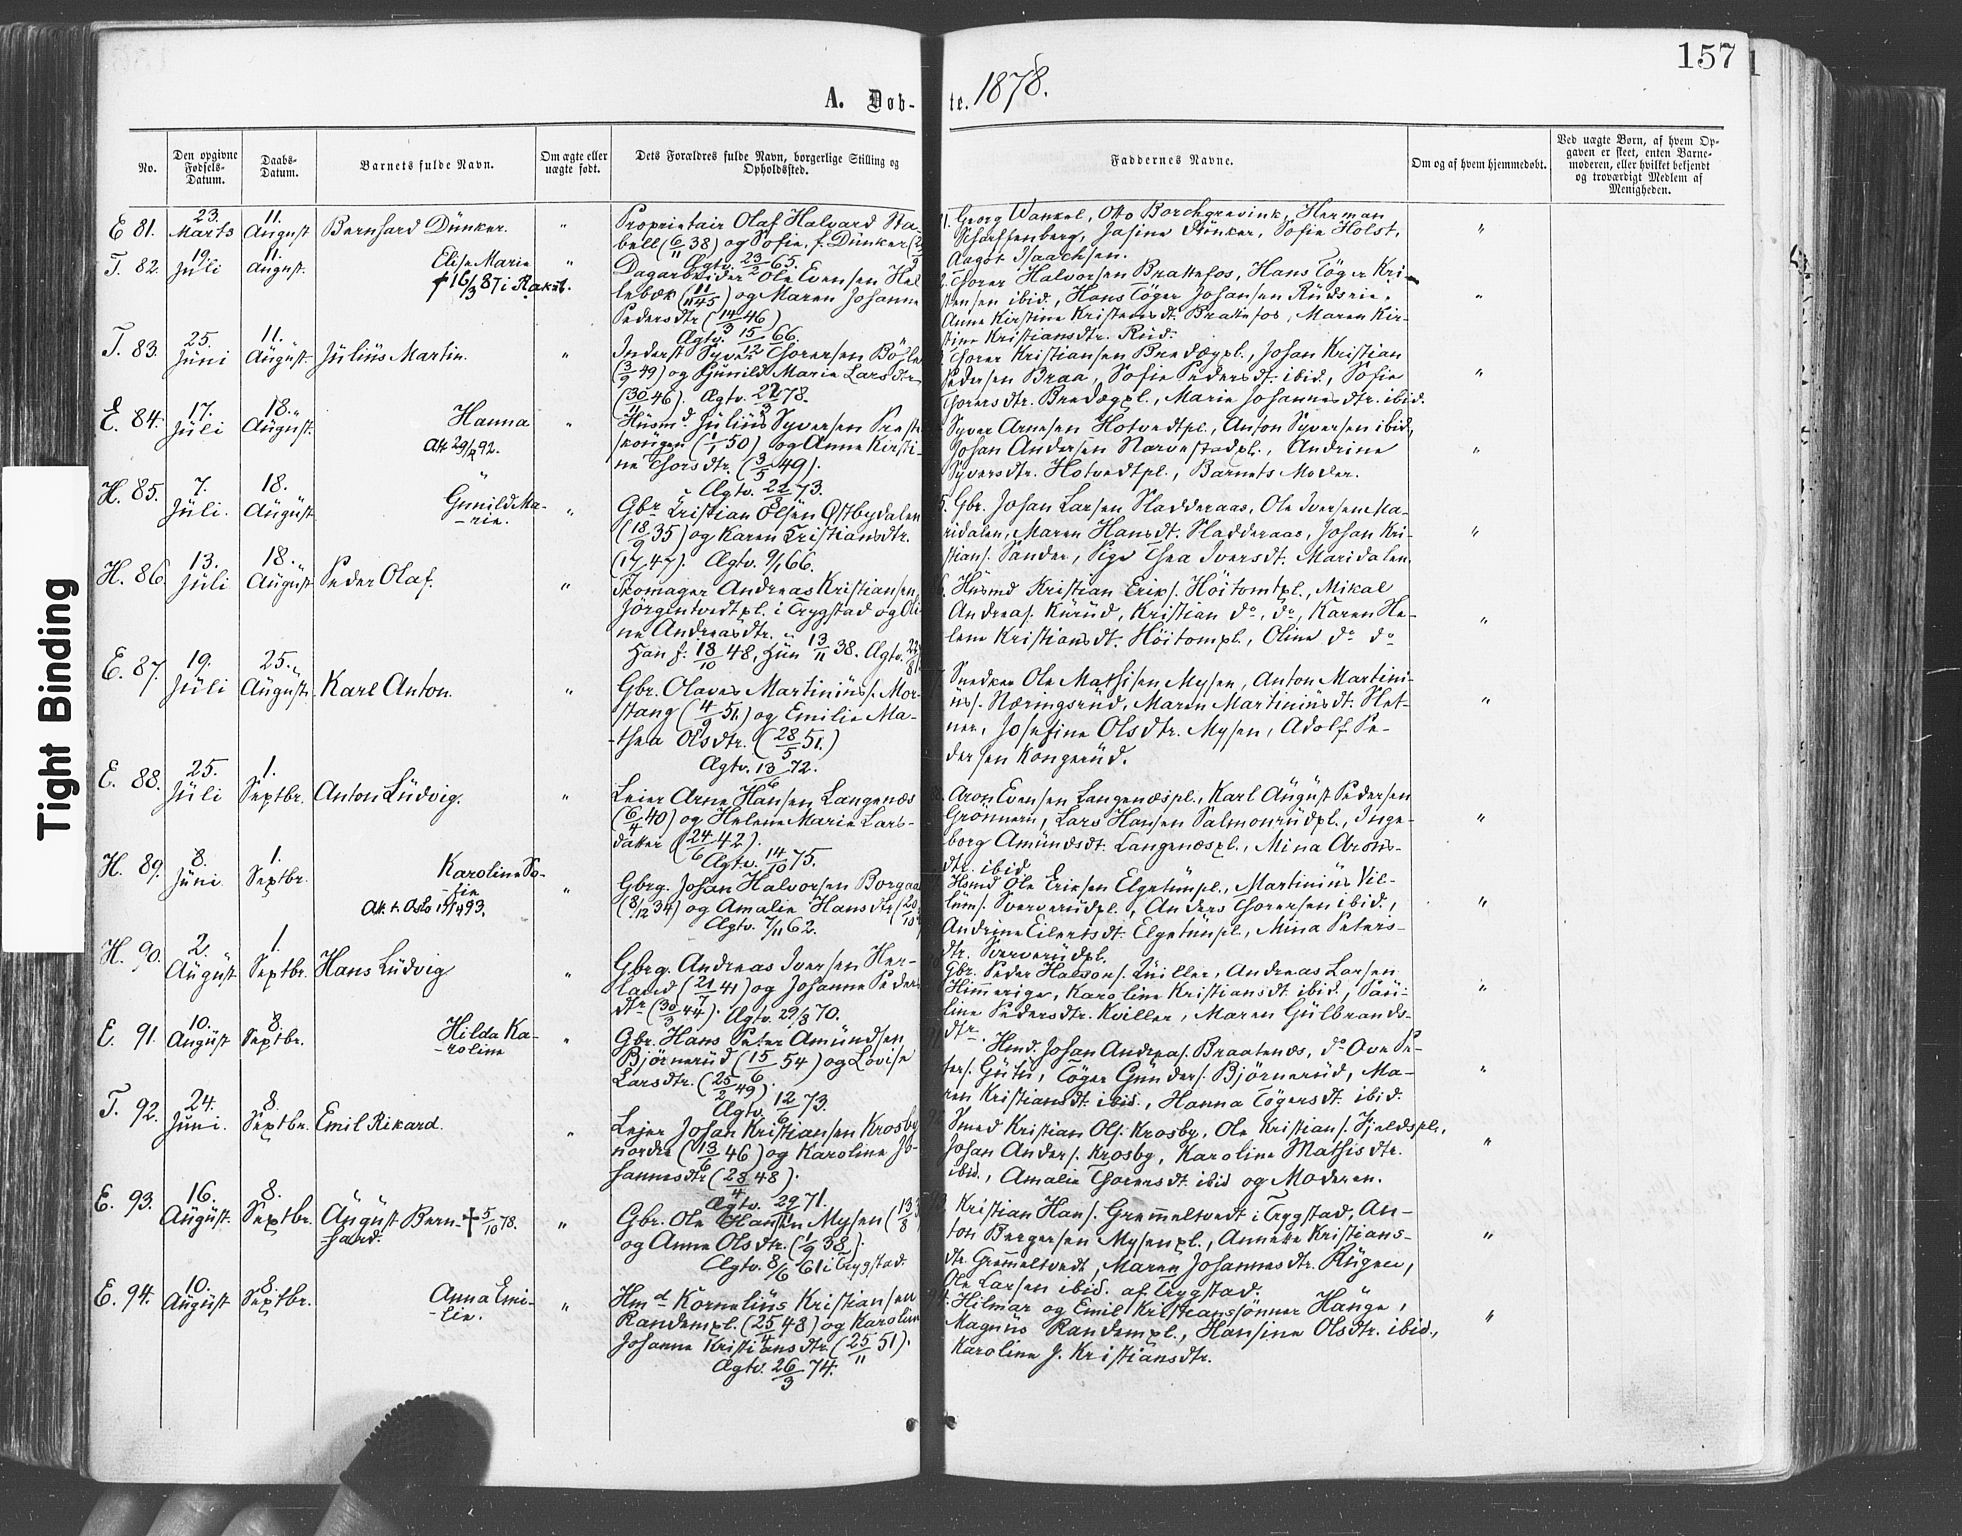 157
A. Døb-
te. 1878.
No.
Den opgivne Fødsels-Datum.
Daabs-Datum.
Barnets fulde Navn.
Om ægte eller uægte født.
Dets Forældres fulde Navn, borgerlige Stilling og Opholdssted.
Faddernes Navne.
Om og af hvem hjemmedøbt.
Ved uægte Børn, af hvem Op-
gaven er skeet, enten Barne-
moderen, eller hvilket bekjendt
og troværdigt Medlem af
Menigheden.
E 81. 23. Marts 11. August Bernhard Dünker. "
Proprietair Olaf Halvard Na-
bell (6/11 38) og Sofie, f. Dünker
Ægtv. 23/2 65.
Georg Wankel, Otto Borchgrevink, Herman
Scharffenberg, Jasine Dünker, Sofie Holst,
Aagot Isaachsen.
T. 82. 19. Juli 11. August. Elise Marie "
✝ 16/3 87 i Rakst.
Dagarbeider Ole Evensen Hel-
lebæk (11/11 45) og Maren Johanne
Pedersdtr (14/3 46)
Ægtv. 15/12 66.
Thorer Halvorsen Brattefos, Hans Töger Kri-
stensen ibid., Hans Töger Johansen Rüdsrie,
Anne Kirstine Kristensdt. Brattefos, Maren Kir-
stine Kristiansdtr. Rüd.
T. 83. 25. Juni 11. August Julius Martin. "
Inderst Syver Thorersen Böhler
(3/9 49) og Gunild Marie Larsdtr
(30/11 46). Ægtv. 22/3 78.
Thorer Kristiansen Bredægpl., Johan Kristian
Pedersen Braa, Sofie Pedersdt. ibid, Sofie
Thorersdtr. Bredægpl., Marie Johannesdtr. ibid.
E. 84. 17. Juli 18. August. Hanna "
Att 29/2 92.
Husmd. Julius Syversen Prest-
skougen (1/1 50) og Anne Kirsti-
ne Thorsdtr. (3/5 49).
Ægtv. 22/8 73.
Syver Arnesen Hotvedtpl., Anton Syversen ibid,
Johan Andersen Narvestadpl., Andrine
Syversdtr. Hotvedtpl., Barnets Moder.
H. 85. 7. Juli. 18. August Gunild Ma-
-rie. "
Gbr Kristian Olsen Østbydalen
(18/9 35) og Karen Kristiansdtr.
(17/4 47). Ægtv. 9/1 66.
Gbr. Johan Larsen Sladderaas, Ole Iversen Ma-
ridalen, Maren Hansdt. Sladderaas, Johan Kri-
stians. Sander, Pige Thea Iversdt. Maridalen.
H. 86. 13. Juli 18. August Peder Olaf. "
Skomager Andreas Kristiansen
Jörgentvedtpl. i Trygstad og Oli-
ne Andreasdtr.
Han f. 18/10 48, Hun 13/11 38. Ægtv.
Husmd Kristian Eriks. Höitomtpl., Mikal
Andreas. Kürüd, Kristian do, do, Karen He-
lene Kristiansdt. Höitompl., Oline do do
E. 87. 19. Juli 25. August. Karl Anton. "
Gbr. Olaves Martinius. Mor-
stang (4/9 51.) og Emilie Ma-
-thea Olsdtr. (28/5 51.)
Ægtv. 13/6 72.
Snedker Ole Mathisen Mysen, Anton Martini-
us. Næringsrüd, Maren Martiniusdt. Slet-
ner, Josefine Olsdtr. Mysen, Adolf Pe-
dersen Kongerüd.
E. 88. 25. Juli 1. Septbr. Anton Ludvig. "
Leier Arne Hansen Langenæs
(6/4 40) og Helene Marie Lars-
datter (24/6 42).
Ægtv. 14/10 75.
Aron Evensen Langenæspl., Karl August Pedersen
Grönnern, Lars Hansen Salmonrüdpl., Inge-
borg Amündsdt. Langenæspl., Mina Arons-
dtr. ibid.
H. 89. 8. Juni 1. Septbr. Karoline So-
-fie "
Att. t. Oslo 11/4 93.
Gbrg. Johan Halvorsen Borgaas
(8/12 34) og Amalie Hansdtr
Ægtv. 7/11 62.
Hsmd Ole Eriksen Elgetünpl., Martinius Vil-
lums. Sververüdpl., Anders Thorersen ibid.,
Andrine Eilertsdt. Elgetünpl., Mina Peters-
dtr. Sververüdpl.
H. 90. 2. August 1. Septbr. Hans Ludvig "
Gbrg. Andreas Iversen Her-
land (21/7 41) og Johanne Peders-
dtr (30/3 44). Ægtv. 29/8 70.
Gbr. Peder Hansens. Kviller, Andreas Larsen
Himmerige, Karoline Kristiansdt. ibid., Pau-
line Pedersdtr. Kviller, Maren Gulbrands-
dtr.
E. 91. 10. August 8. Septbr. Hilda Ka-
-roline "
Gbr. Hans Peter Amündsen
Björnerüd (15/6 54) og Lovise
Larsdtr. (25/2 49)
Ægtv. 12/6 73.
Hmd. Johan Andreas. Braatenæs, do Ove Pe-
ters. Gütu, Töger Günders. Björnerüd, Ma-
ren Kristiansdt. ibid., Hanna Tögersdt. ibid.
T. 92. 24. Juni. 8. Septbr. Emil Rikard. "
Leier Johan Kristiansen Krosby
nordre (13/6 46) og Karoline Jo-
hannesdtr (28/4 48).
Ægtv. 29/11 71.
Smed Kristian Ols. Krosby, Ole Kristians. Fjeldspl.,
Johan Anders. Krosby, Karoline Mathisdtr.
ibid., Amalie Thorersdt. ibid og Moderen.
E. 93. 16. August. 8. Septbr. August Bern-
-hard. ✝ 5/10 78. "
Gbr. Ole Hansen Mysen (13/8
og Anne Olsdtr. (1/9 38).
Ægtv. 8/6 61 i Trygstad.
Kristian Hans. Gremmeltvedt i Trygstad, An-
ton Bergersen Mysenpl., Annette Kristians-
dtr Gremmeltvedt, Maren Johannesdtr. Rügen,
Ole Larsen ibid. af Trygstad.
E. 94. 10. August 8. Septbr. Anna Emi-
-lie. "
Hmd Kornelius Kristiansen
Randempl. (25/4 48) og Karoline
Johanne Kristiansdtr. (25/11 51).
Ægtv. 26/3 74.
Hilmar og Emil Kristianssönner Haüge,
Magnüs Randempl., Hansine Olsdtr. ibid.,
Karoline J. Kristiansdtr.
Tight Binding